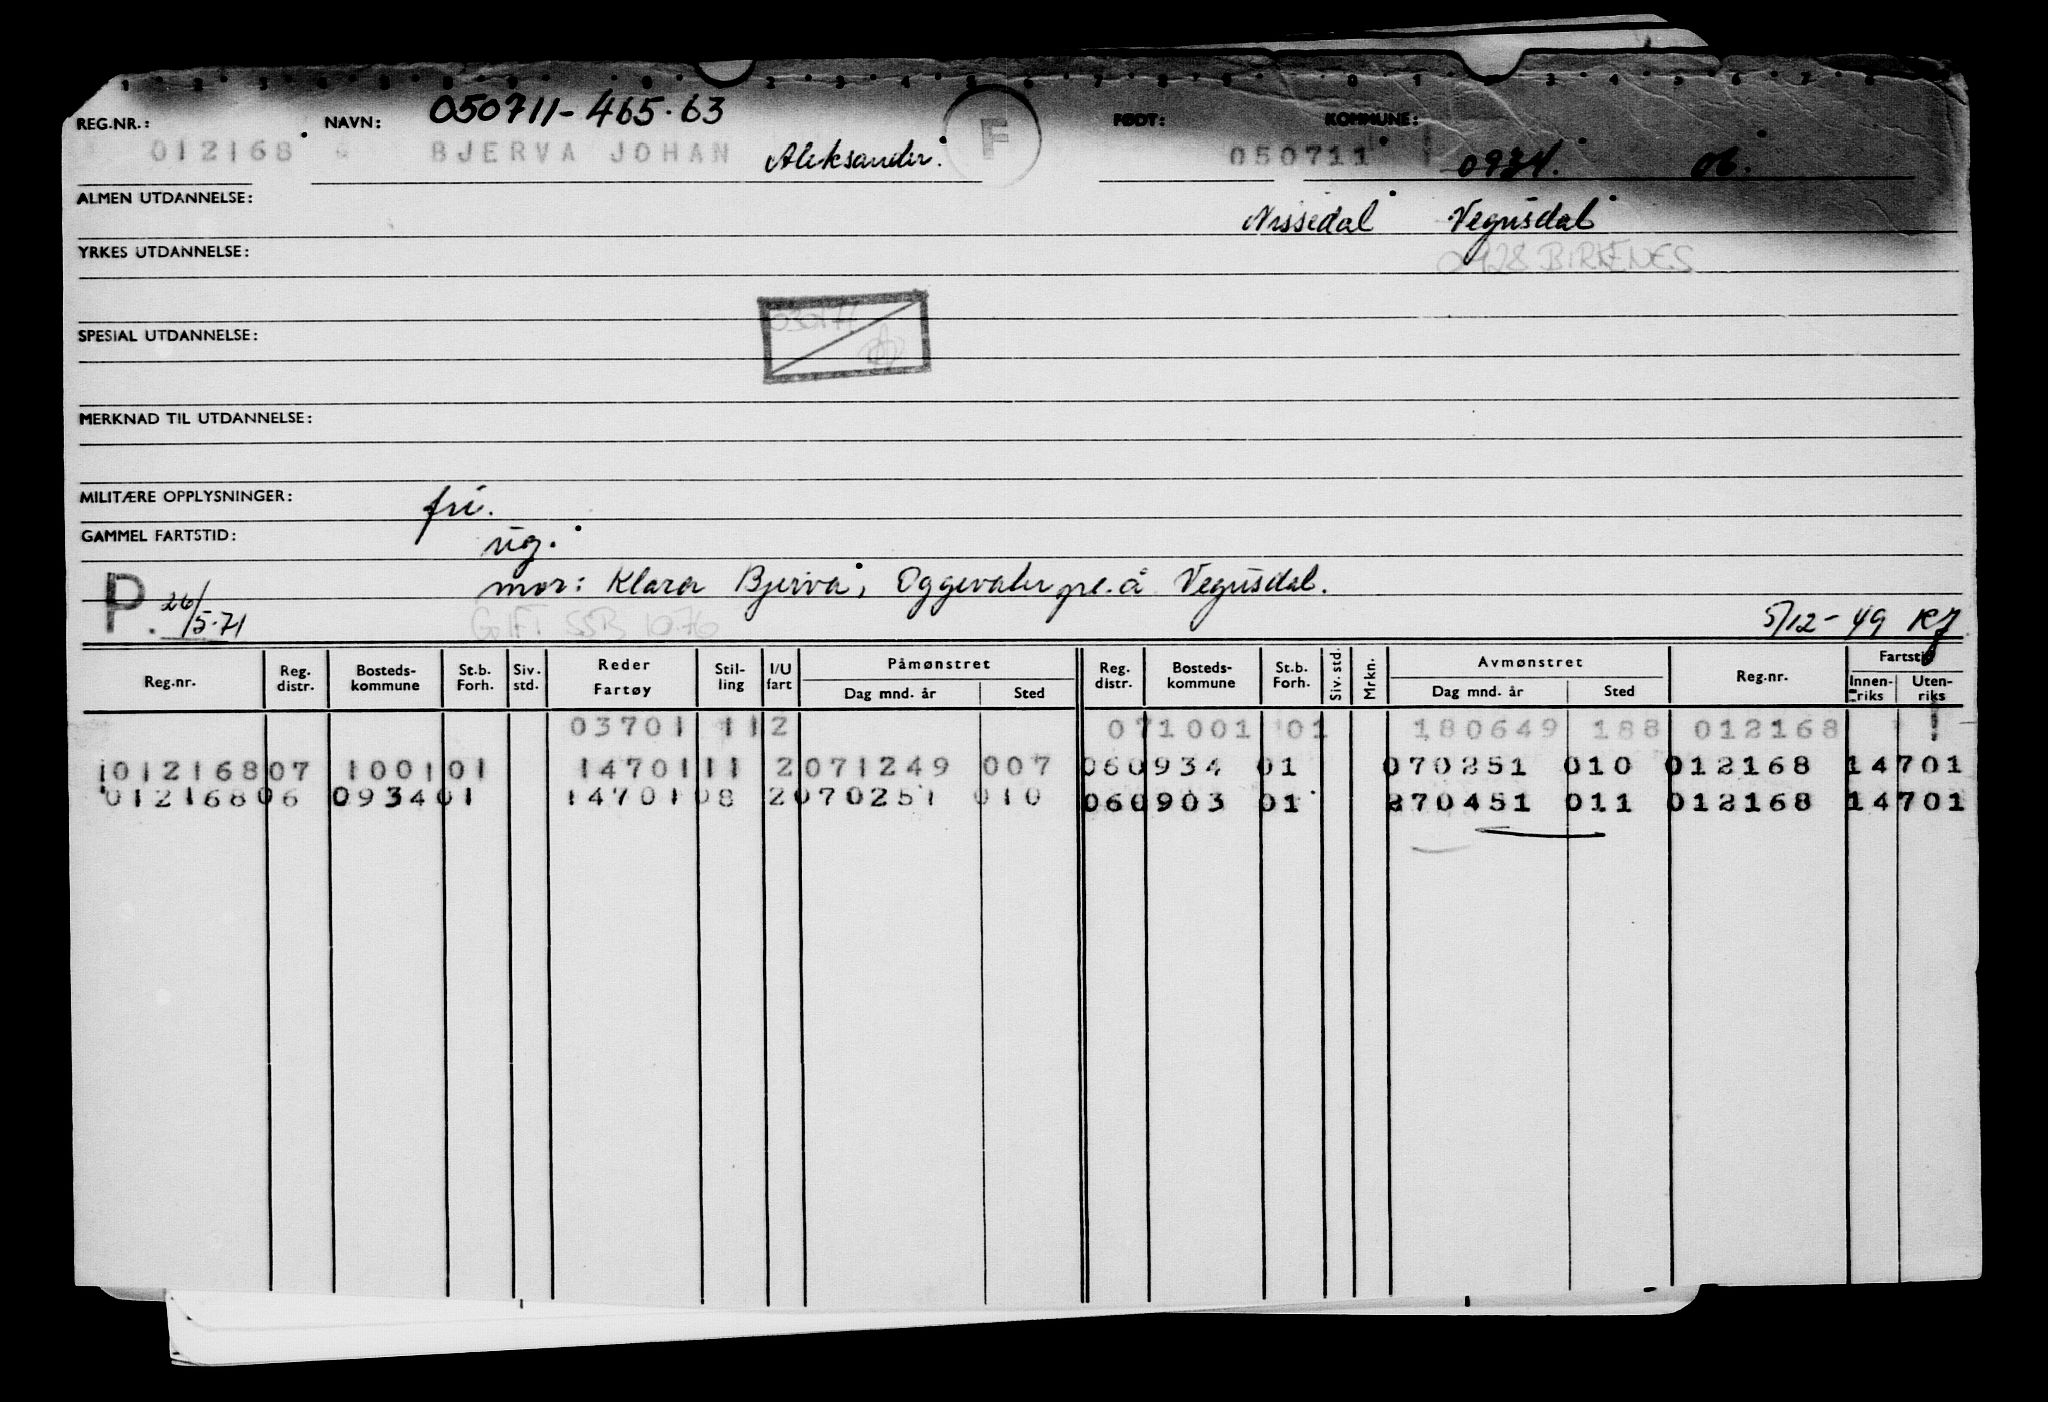 050711-465.63
REG.NR.: NAVN: F FØDT: KOMMUNE:
012168 BJERVA JOHAN Aleksander. 050711 0934. 06.
ALMEN UTDANNELSE: Nissedal Vegusdal
YRKES UTDANNELSE: 0928 BIRKENES
SPESIAL UTDANNELSE:
MERKNAD TIL UTDANNELSE:
MILITÆRE OPPLYSNINGER: fri.
GAMMEL FARTSTID: ug.
mor: Klara Bjerva, Oggevatn pr. å Vegusdal.
P. 26/5-71 GIFT SSB 10.76 5/12-49 KJ
Reg.nr. Reg. distr. Bosteds-kommune St.b. Forh. Siv. std. Reder Fartøy Stil-ling I/U fart Påmønstret Dag mnd. år Sted Reg. distr. Bosteds-kommune St.b. Forh. Siv. std. Mrkn. Avmønstret Dag mnd. år Sted Reg.nr. Fartstid Innen-riks Uten-riks
03701 112 071001 01 180649 188 012168
01216807 100101 1470111 2071249 007 060934 01 070251 010 012168 14701
01216806 093401 1470108 2070251 010 060903 01 270451 011 012168 14701